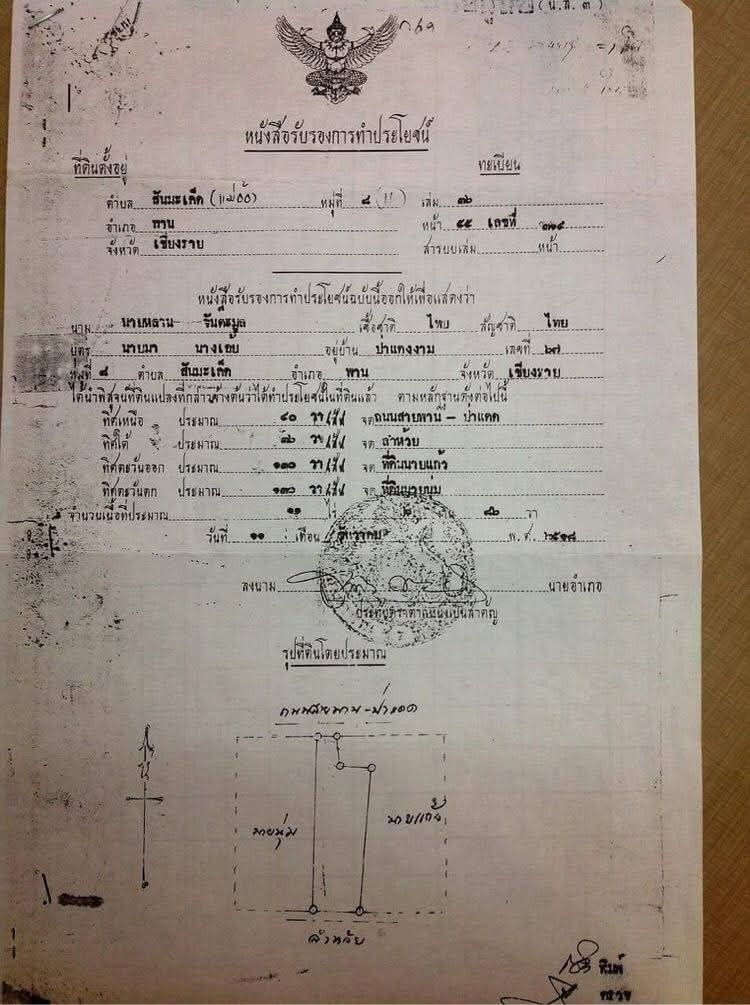 (น.ส. ๓)
หนังสือรับรองการทำประโยชน์
ที่ดินตั้งอยู่ ทะเบียน
ตำบล สันมะเค็ด (แม่อ้อ) หมู่ที่ ๘ (11) เล่ม ๓๖
อำเภอ พาน หน้า ๔๕ เลขที่
จังหวัด เชียงราย สารบบเล่ม หน้า
หนังสือรับรองการทำประโยชน์ฉบับนี้ออกให้เพื่อแสดงว่า
นาม นายหลาน จันต๊ะมูล เชื้อชาติ ไทย สัญชาติ ไทย
บุตร นายมา นางเอ้ย อยู่บ้าน ป่าแดงงาม เลขที่ ๖๗
หมู่ที่ ๘ ตำบล สันมะเค็ด อำเภอ พาน จังหวัด เชียงราย
ได้นำพิสูจน์ที่ดินแปลงที่กล่าวข้างต้นว่าได้ทำประโยชน์ในที่ดินแล้ว ตามหลักฐานดังต่อไปนี้
ทิศเหนือ ประมาณ ๔๐ วา/เส้น จด ถนนสายพาน - ป่าแดด
ทิศใต้ ประมาณ วา/เส้น จด ลำห้วย
ทิศตะวันออก ประมาณ ๑๓๐ วา/เส้น จด ที่ดินนายแก้ว
ทิศตะวันตก ประมาณ ๑๓๘ วา/เส้น จด ที่ดินนายนุ่ม
จำนวนเนื้อที่ประมาณ ๑๑ ไร่ งาน วา
วันที่ ๑๑ เดือน ธันวาคม พ.ศ. ๒๕๑๘
ลงนาม นายอำเภอ
ประทับตราตำแหน่งเป็นสำคัญ
รูปที่ดินโดยประมาณ
ถนนสายพาน - ป่าแดด
น
นายนุ่ม นายแก้ว
ลำห้วย
พิมพ์
ตรวจ